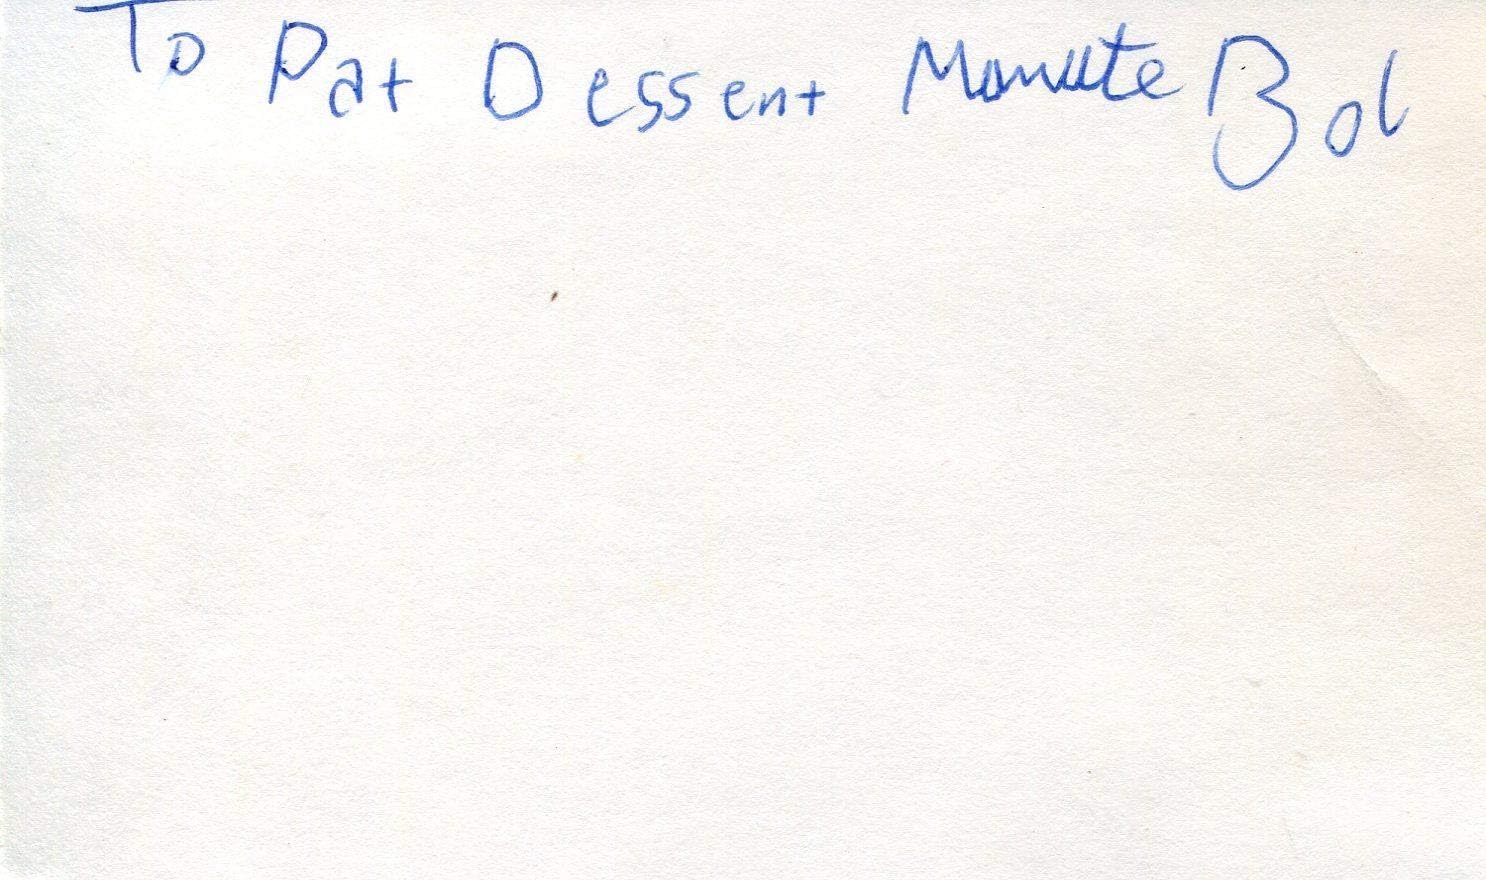 To Pat Dessent Manute Bol